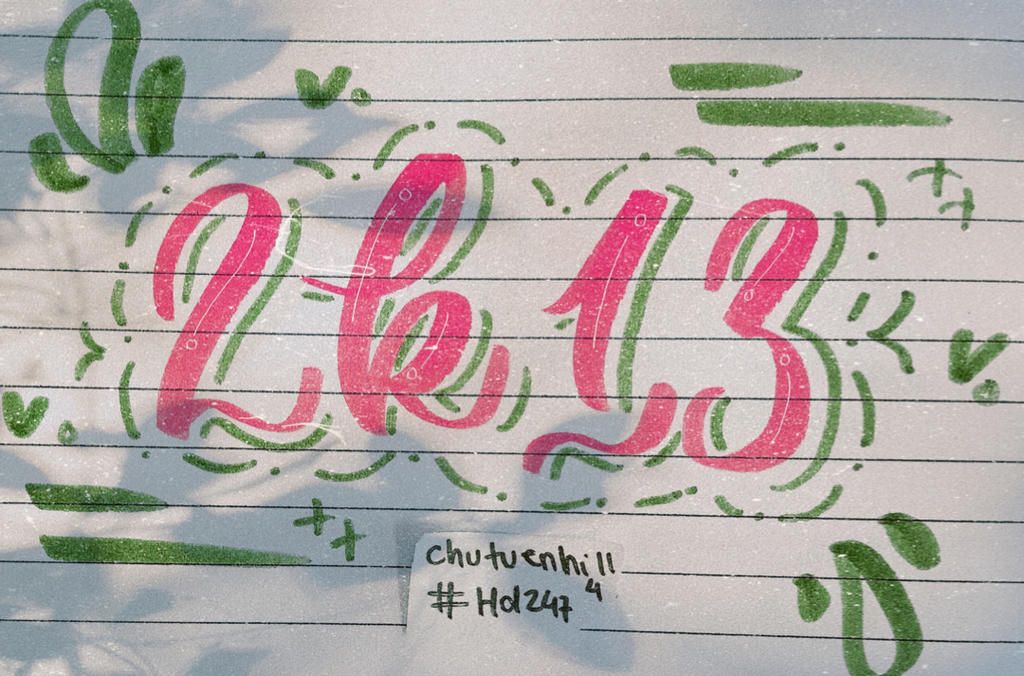 2k13
chutuenhill
#Hd247
4